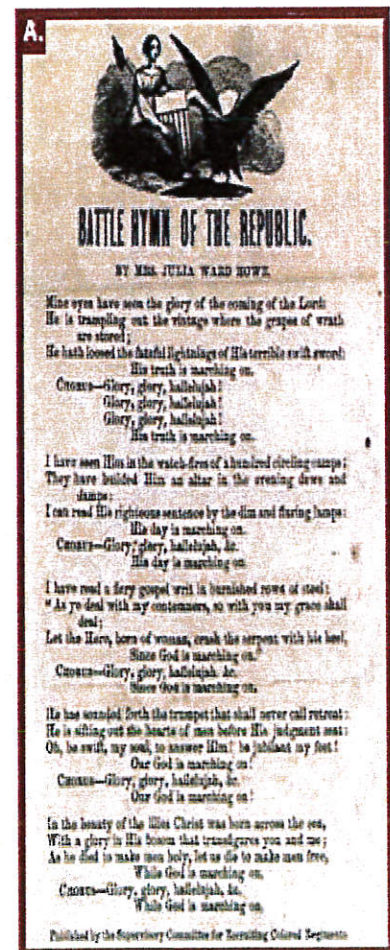 A.
BATTLE HYMN OF THE REPUBLIC.
BY MRS. JULIA WARD HOWE.
Mine eyes have seen the glory of the coming of the Lord:
He is trampling out the vintage where the grapes of wrath
are stored;
He hath loosed the fateful lightnings of His terrible swift sword:
His truth is marching on.
CHORUS—Glory, glory, hallelujah!
Glory, glory, hallelujah!
Glory, glory, hallelujah!
His truth is marching on.
I have seen Him in the watch-fires of a hundred circling camps;
They have builded Him an altar in the evening dews and
damps;
I can read His righteous sentence by the dim and flaring lamps:
His day is marching on.
CHORUS—Glory, glory, hallelujah, &c.
His day is marching on.
I have read a fiery gospel writ in burnished rows of steel;
"As ye deal with my contemners, so with you my grace shall
deal;
Let the Hero, born of woman, crush the serpent with his heel,
Since God is marching on."
CHORUS—Glory, glory, hallelujah, &c.
Since God is marching on.
He has sounded forth the trumpet that shall never call retreat:
He is sifting out the hearts of men before His judgment seat:
Oh, be swift, my soul, to answer Him! be jubilant my feet!
Our God is marching on!
CHORUS—Glory, glory, hallelujah, &c.
Our God is marching on!
In the beauty of the lilies Christ was born across the sea,
With a glory in His bosom that transfigures you and me;
As he died to make men holy, let us die to make men free,
While God is marching on.
CHORUS—Glory, glory, hallelujah, &c.
While God is marching on.
Published by the Supervisory Committee for Recruiting Colored Regiments